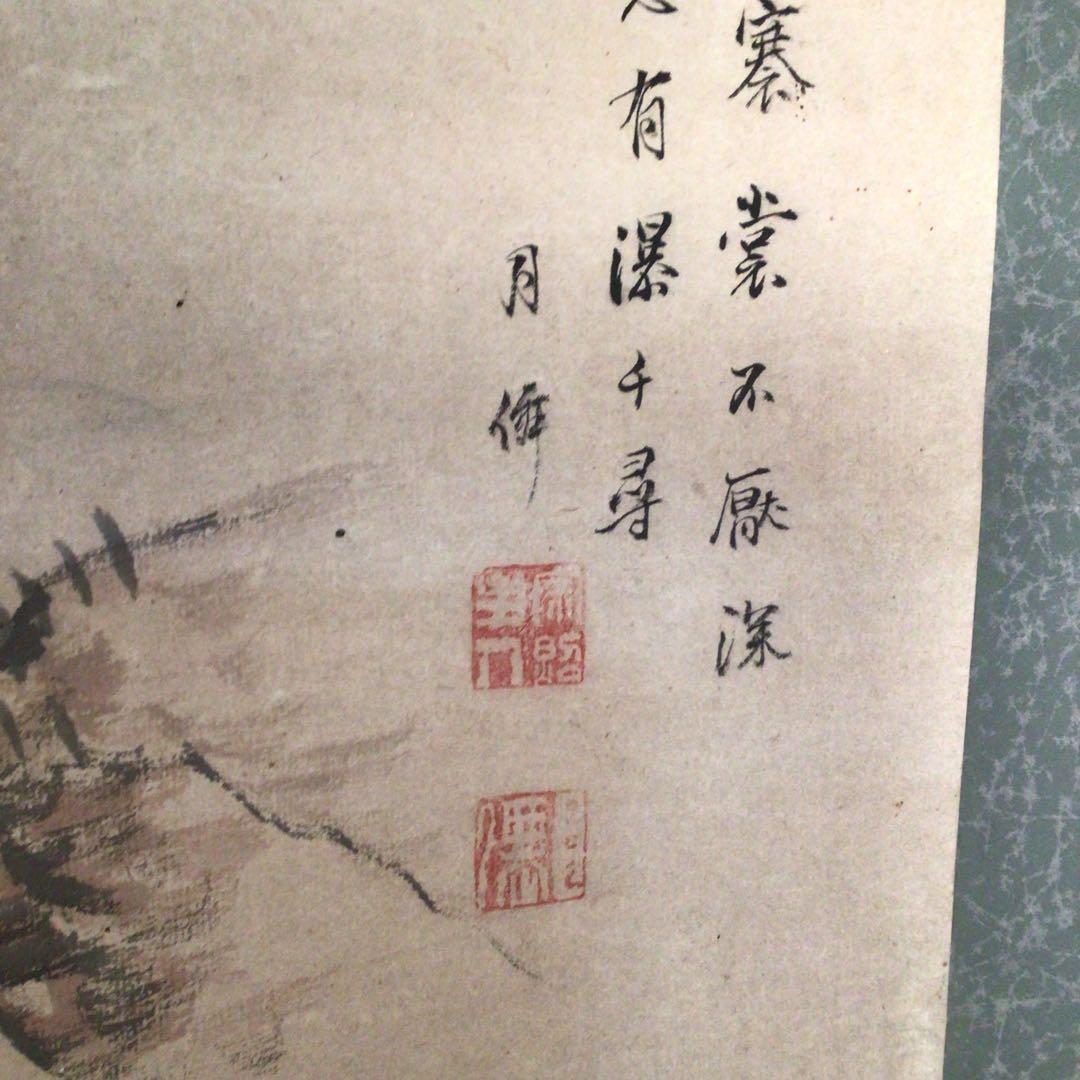 褰裳不厭深
有瀑千尋
月僊